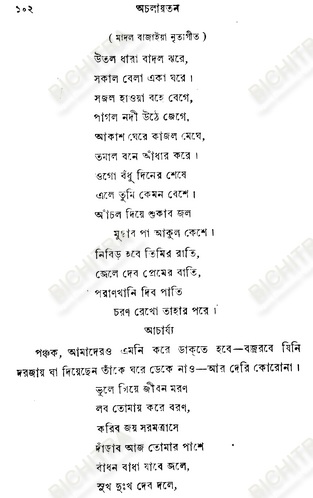 ১০২ অচলায়তন
( মাদল বাজাইয়া নৃত্যগীত )
উতল ধারা বাদল ঝরে,
সকাল বেলা একা ঘরে ।
সজল হাওয়া বহে বেগে,
পাগল নদী উঠে জেগে,
আকাশ ঘেরে কাজল মেঘে,
তমাল বনে আঁধার করে ।
ওগো বঁধু দিনের শেষে
এলে তুমি কেমন বেশে ।
আঁচল দিয়ে শুকাব জল
মুছাব পা আকুল কেশে ।
নিবিড় হবে তিমির রাতি,
জ্বেলে দেব প্রেমের বাতি,
পরাণখানি দিব পাতি
চরণ রেখো তাহার পরে ।
আচার্য্য
পঞ্চক, আমাদেরও এমনি করে ডাকতে হবে—বজ্ররবে যিনি
দরজায় ঘা দিয়েছেন তাঁকে ঘরে ডেকে নাও—আর দেরি কোরোনা ।
ভুলে গিয়ে জীবন মরণ
লব তোমায় করে বরণ,
করিব জয় সরমত্রাসে
দাঁড়াব আজ তোমার পাশে
বাঁধন বাধা যাবে জ্বলে,
সুখ দুঃখ দেব দলে,
BICHITRA